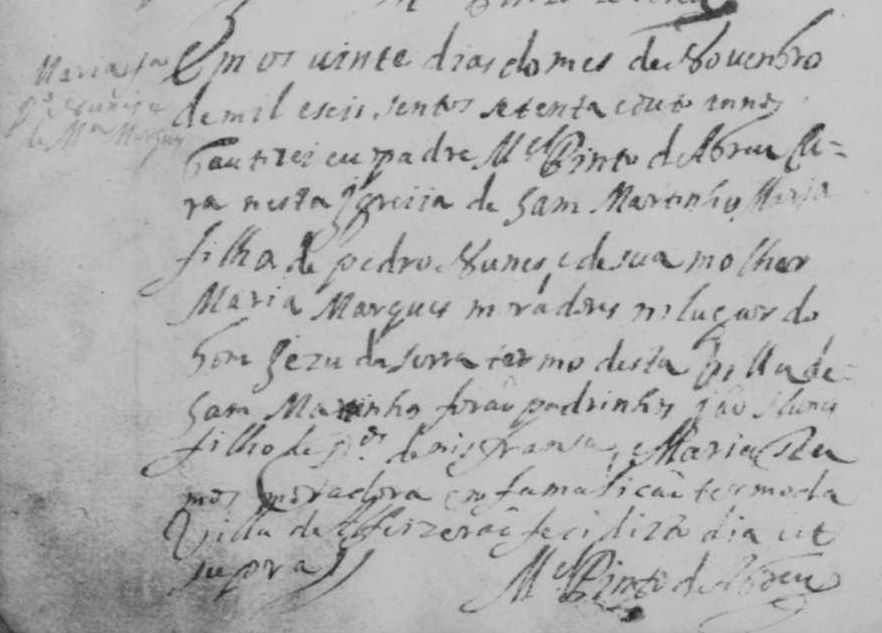 Maria fa
de Ma Marques
Em os uinte dias do mes de Nouenbro
de mil e seis sentos setenta e outo annos
bautizei eu padre Mel Pinto de Abreu Cu=
ra nesta Igreiia de Sam Martinho Maria
filha de pedro Nunes, e de sua molher
Maria Marques moradores no luguar do
bom Jezu da serra termo desta Villa de
Sam Martinho forão padrinhos João Nunes
filho de fransa, e Maria Ra
mos moradora em famalicão termo da
Villa de Alfeizerão fe ci dizto dia ut
supra
Mel Pinto de Abreu